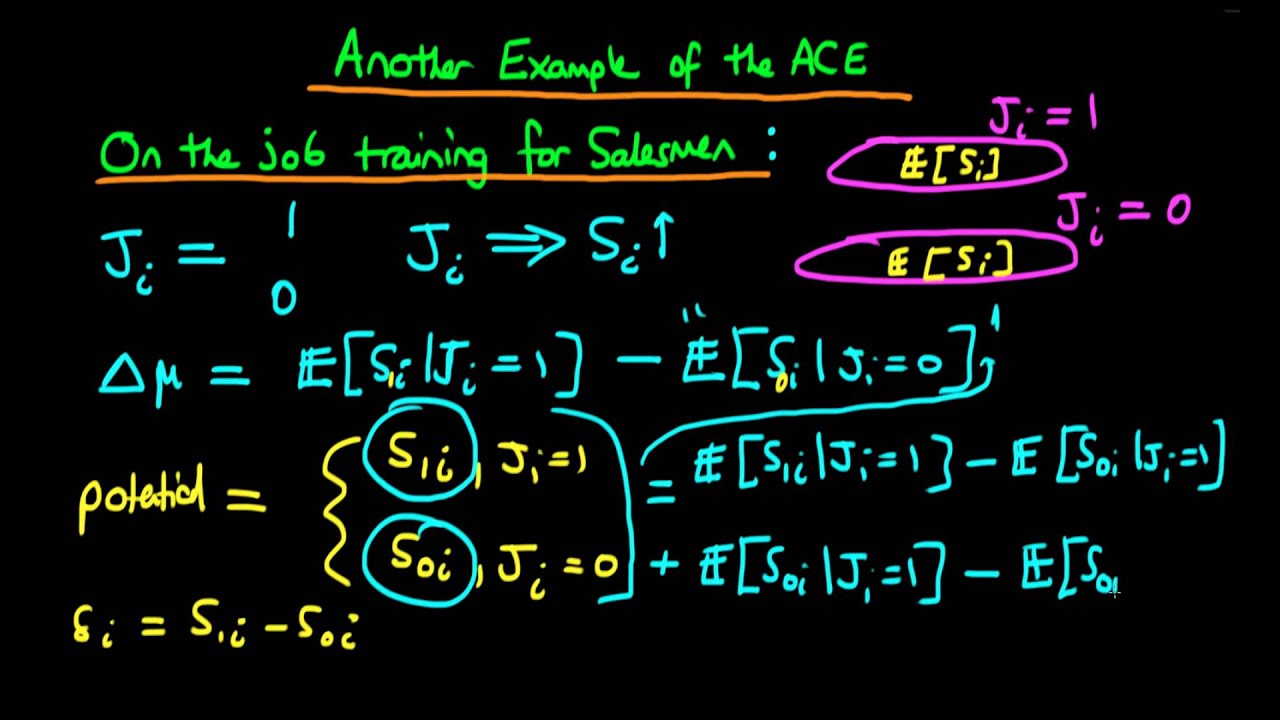 Another Example of the ACE
On the job training for Salesmen :
J_i = 1
𝔼[S_i]
J_i = 0
𝔼[S_i]
J_i = 1
0
J_i ⇒ S_i ↑
Δμ = 𝔼[S_1i | J_i = 1] − "𝔼[S_0i | J_i = 0]"
potential = { S_1i , J_i = 1
S_0i , J_i = 0 ]
= 𝔼[S_1i | J_i = 1] − 𝔼[S_0i | J_i = 1]
+ 𝔼[S_0i | J_i = 1] − 𝔼[S_0i
δ_i = S_1i − S_0i